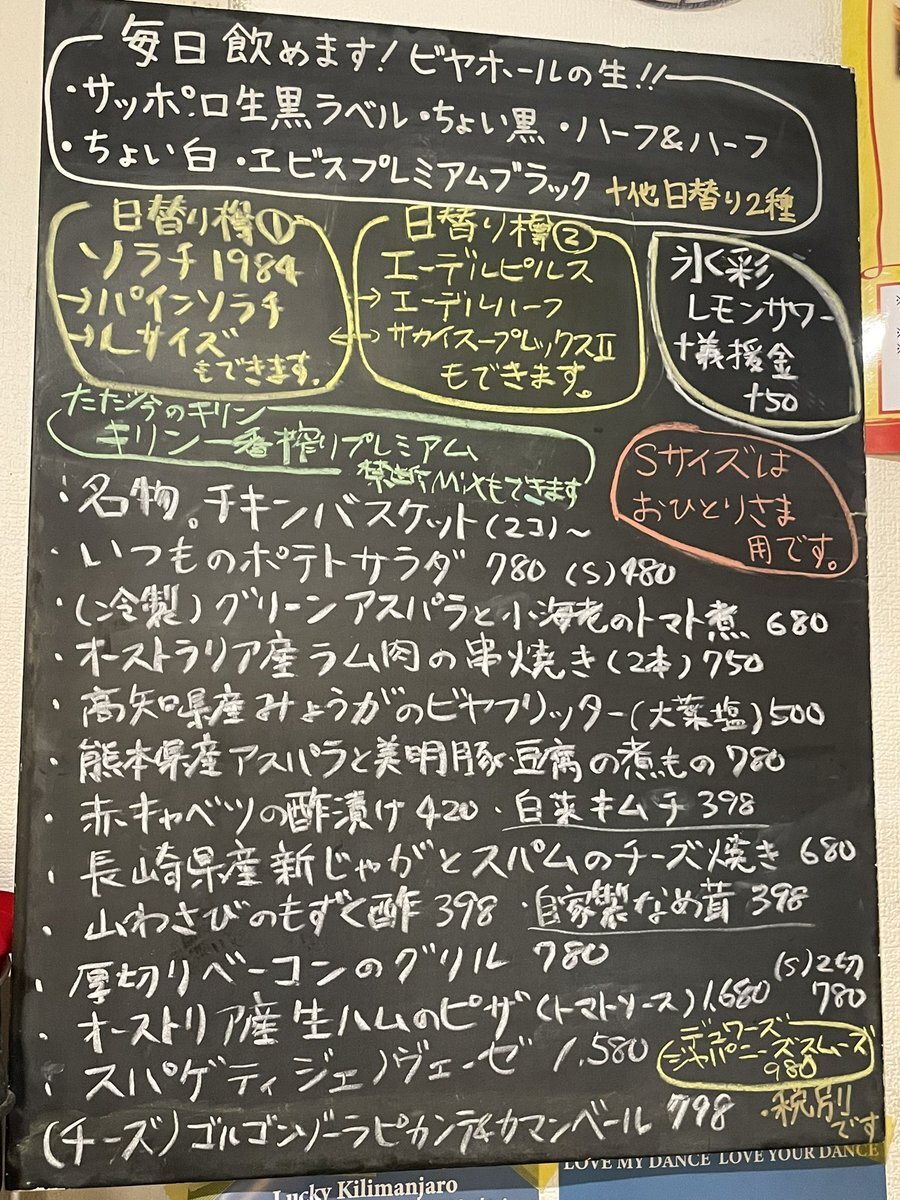 毎日飲めます！ビヤホールの生！！
・サッポロ生黒ラベル・ちょい黒・ハーフ&ハーフ
・ちょい白・ヱビスプレミアムブラック +他日替り2種
日替り樽①
ソラチ1984
→パインソラチ
→Lサイズ
もできます。
日替り樽②
エーデルピルス
→エーデルハーフ
サカイスープレックスⅡ
もできます。
氷彩
レモンサワー
+義援金
+50
ただ今のキリン
キリン一番搾りプレミアム
禁断MiXもできます
Sサイズは
おひとりさま
用です。
・名物。チキンバスケット(2コ)〜
・いつものポテトサラダ 780 (S)480
・(冷製)グリーンアスパラと小海老のトマト煮 680
・オーストラリア産ラム肉の串焼き(2本)750
・高知県産みょうがのビヤフリッター(大葉塩)500
・熊本県産アスパラと美明豚・豆腐の煮もの 780
・赤キャベツの酢漬け 420 ・白菜キムチ 398
・長崎県産新じゃがとスパムのチーズ焼き 680
・山わさびのもずく酢 398 ・自家製なめ茸 398
・厚切りベーコンのグリル 780
・オーストリア産生ハムのピザ(トマトソース)1,680 (S)2切 780
・スパゲティジェノヴェーゼ 1,580
デュワーズ
ジャパニーズスムーズ
980
(チーズ)ゴルゴンゾーラピカンテ&カマンベール 798
・税別
です
Lucky Kilimanjaro
LOVE MY DANCE LOVE YOUR DANCE